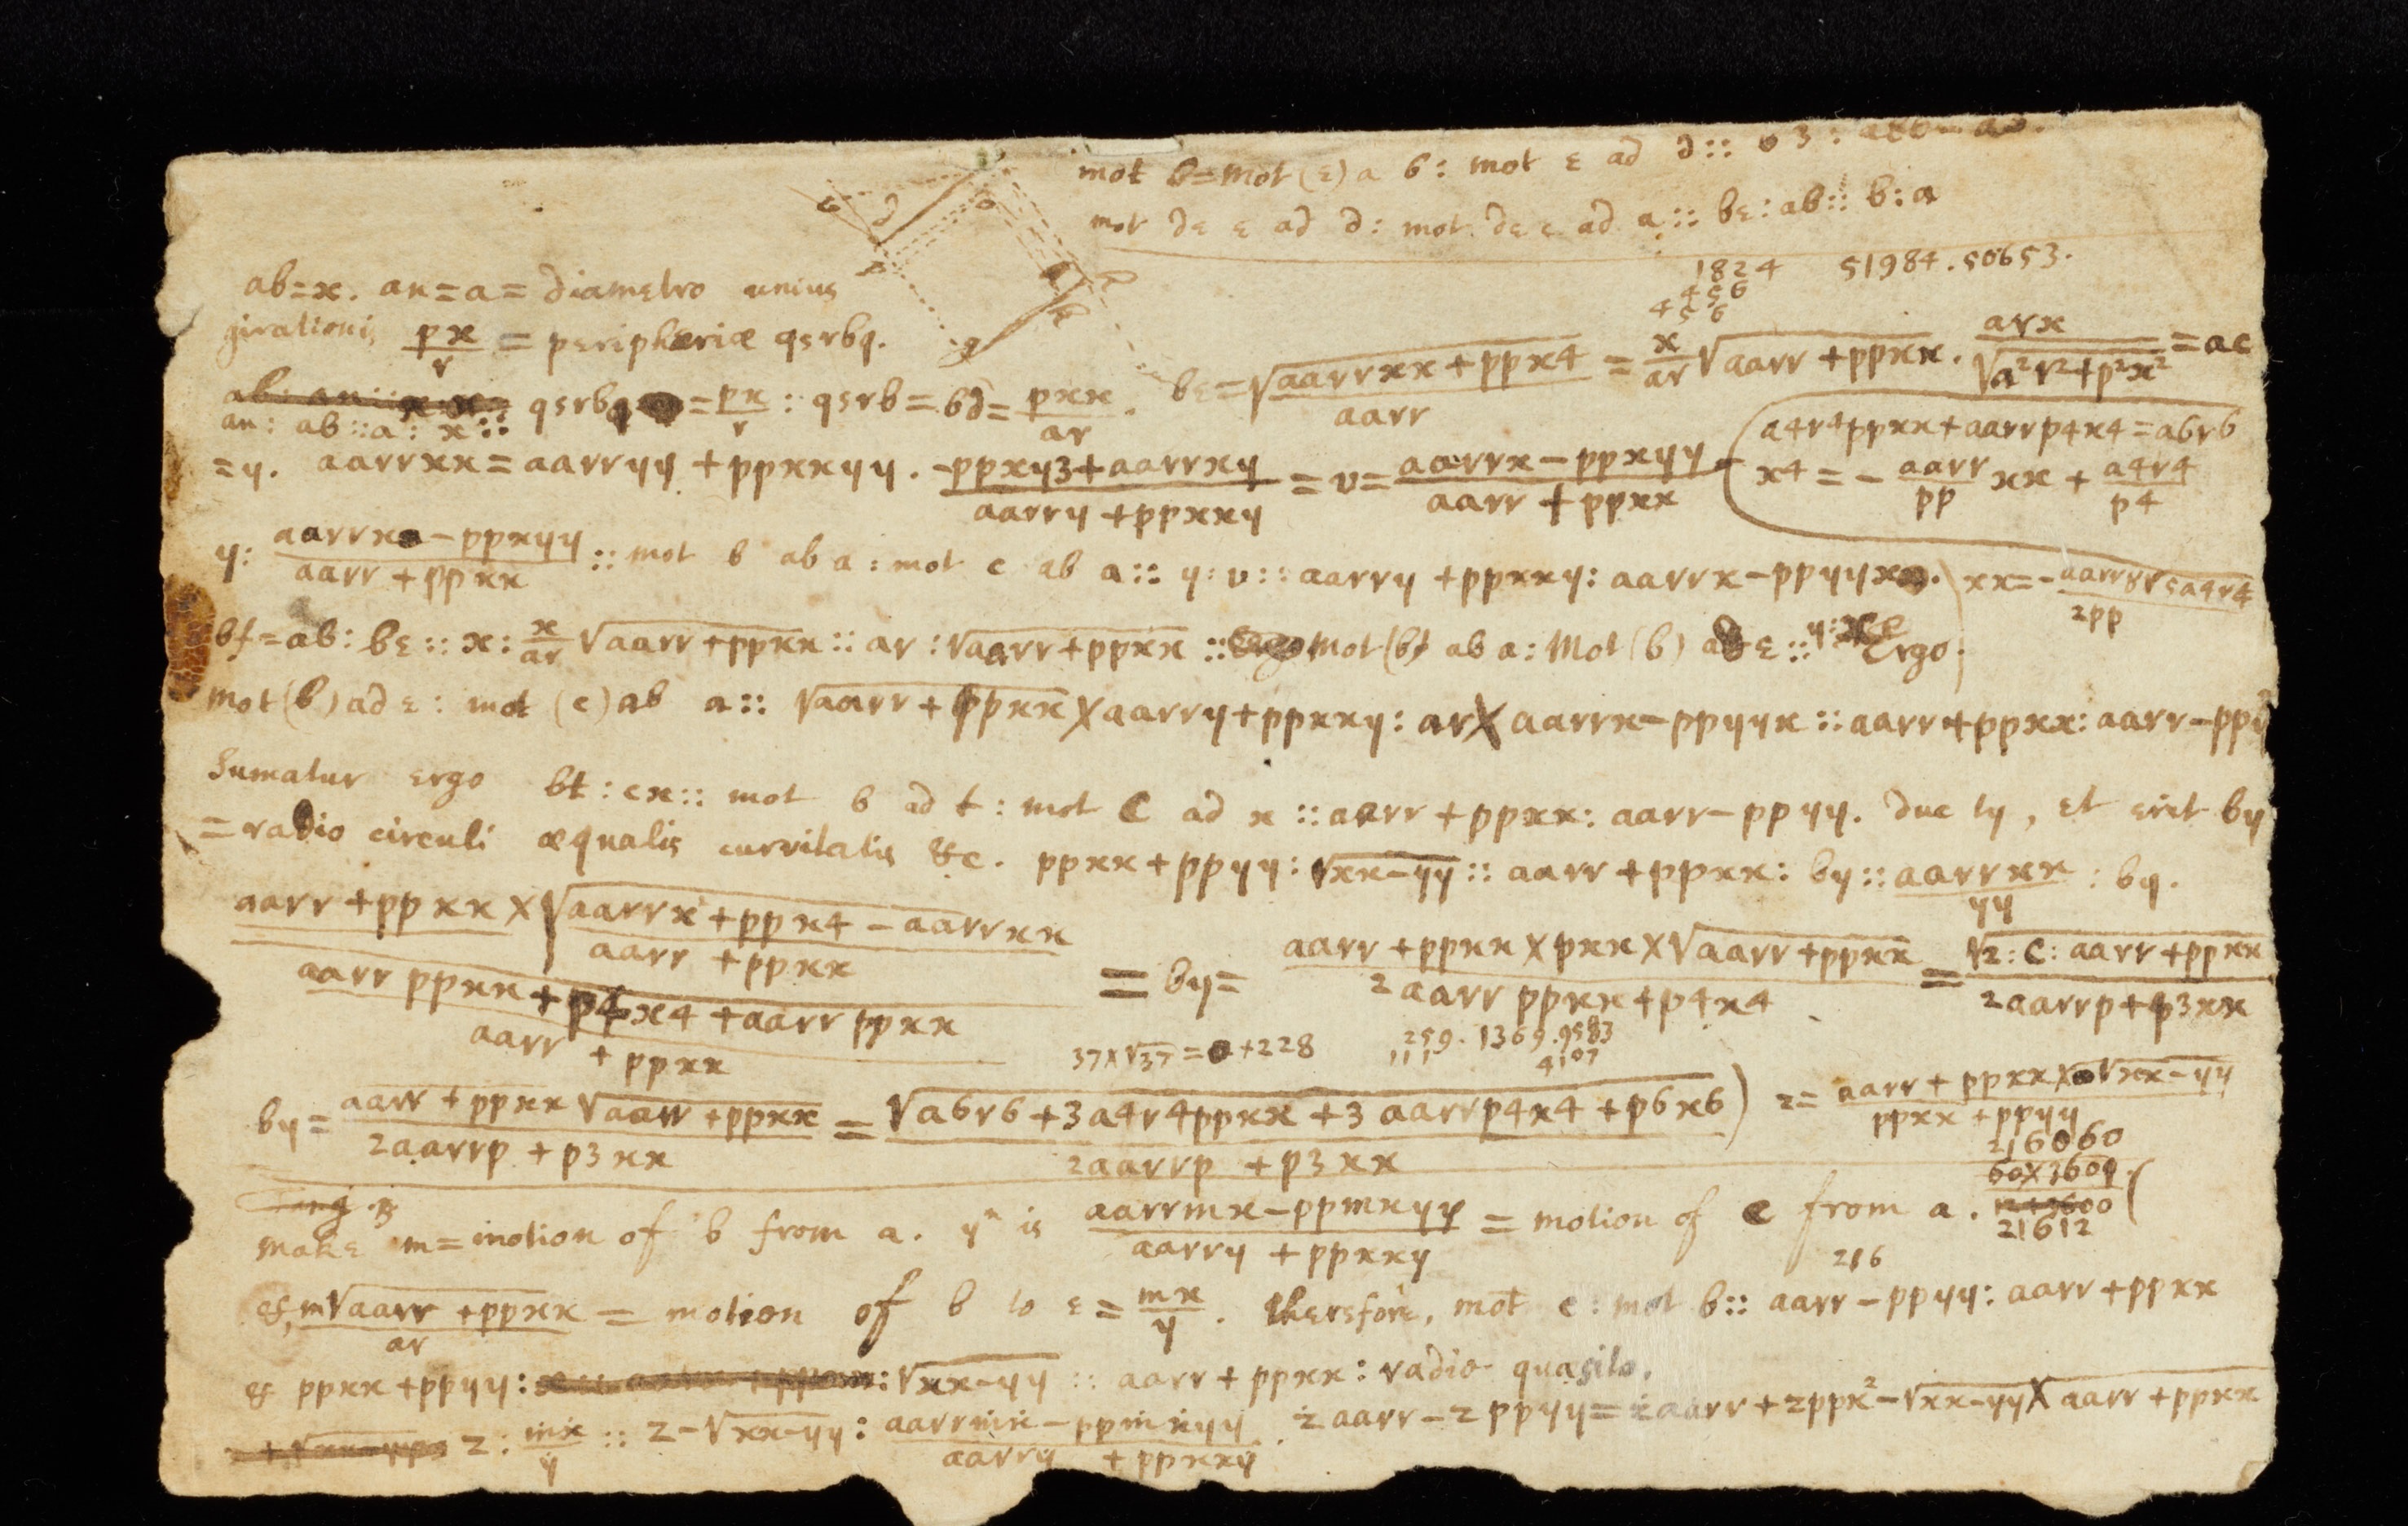 mot b=mot (ε) a b: mot ε ad d::
mot de ε ad d: mot de ε ad a:: bε: ab:: b: a
1824 51984. 50653.
456
456
ab=x. an=a= diametro unius
girationis px/r = peripheriæ qsrbq.
an: ab::a: x:: qsrbq =px/r: qsrb=bd=pxx/ar. bε=√(aarrxx+ppx4)/aarr = x/ar √aarr+ppxx. arx/√a²r²+p²x² =ac
=y. aarrxx=aarryy+ppxxyy. -ppxy3+aarrxy/aarry+ppxxy =v= aarrx-ppxyy/aarr+ppxx
a4r4ppxx+aarrp4x4=a6r6
x4=- aarr/pp xx + a4r4/p4
y: aarrx-ppxyy/aarr+ppxx :: mot b ab a: mot c ab a:: y: v:: aarry+ppxxy: aarrx-ppyyx.
xx=- aarr 2pp
bf=ab: bε:: x: x/ar √aarr+ppxx:: ar: √aarr+ppxx :: mot (b) ab a: Mot (b) ad ε:: y: x Ergo.
mot (b) ad ε: mot (c) ab a:: √aarr+ppxx X aarry+ppxxy: ar X aarrx-ppyyx:: aarr+ppxx: aarr-ppy
Sumatur ergo bt: cx:: mot b ad t: mot C ad x:: aarr+ppxx: aarr-ppyy. duc ty, et erit by
=radio circuli æqualis curvitatis &c. ppxx+ppyy: √xx-yy:: aarr+ppxx: by:: aarrxx/yy : by.
aarr+ppxx X √(aarrx+ppx4-aarrxx/aarr+ppxx) / (aarrppxx+p4x4+aarrppxx/aarr+ppxx) = by= aarr+ppxx X pxx X √aarr+ppxx/2aarrppxx+p4x4 = √2: C: aarr+ppxx/2aarrp+p3xx
37X√37= +228 259. 1369. 9583
111 4107
by= aarr+ppxx √aarr+ppxx/2aarrp+p3xx = √a6r6+3a4r4ppxx+3aarrp4x4+p6x6/2aarrp+p3xx) z= aarr+ppxx X √xx-yy/ppxx+ppyy
216060
60X3609
12+3600
21612
make m=motion of b from a. yⁿ is aarrmx-ppmxyy/aarry+ppxxy = motion of c from a.
216
& m√aarr+ppxx/ar = motion of b to ε= mx/y. therefore, mot c: mot b:: aarr-ppyy: aarr+ppxx
& ppxx+ppyy: √xx-yy:: aarr+ppxx: radio quæsito.
z: mx/y :: z-√xx-yy: aarrmx-ppmxyy/aarry+ppxxy. zaarr-zppyy=zaarr+zppx²-√xx-yy X aarr+ppxx